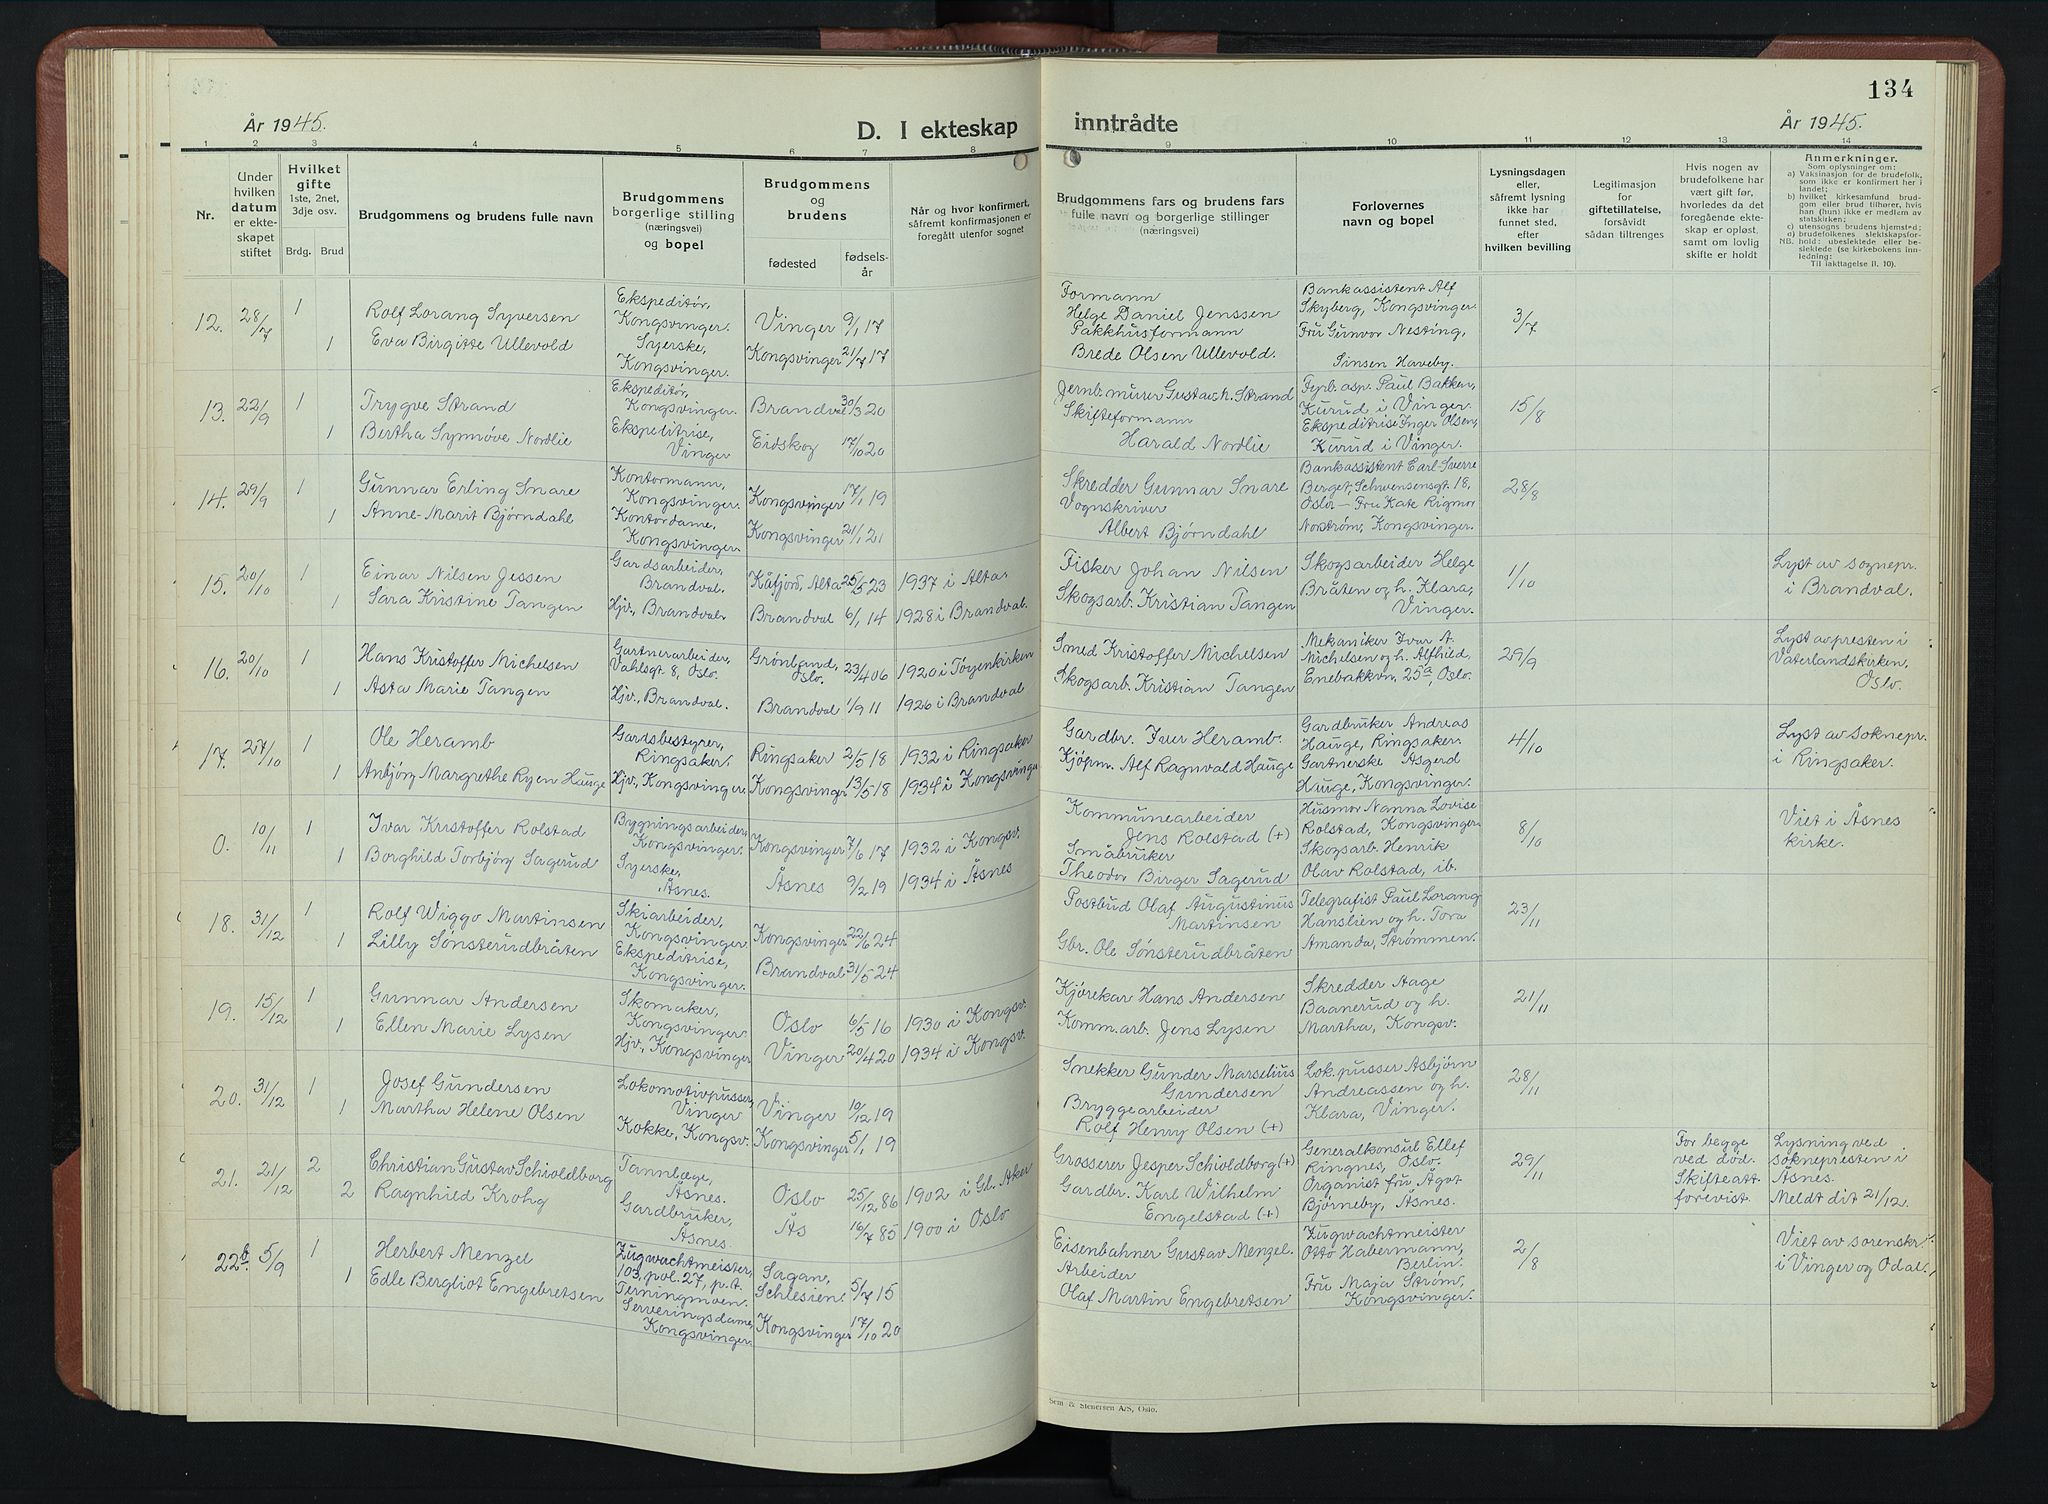 134
År 1945.
D. I ekteskap inntrådte
År 1945.
1 2 3 4 5 6 7 8 9 10 11 12 13 14
Nr.
Under hvilken datum er ekteskapet stiftet
Hvilket gifte 1ste, 2net, 3dje osv.
Brdg. Brud
Brudgommens og brudens fulle navn
Brudgommens borgerlige stilling (næringsvei) og bopel
Brudgommens og brudens
fødested
fødselsår
Når og hvor konfirmert, såfremt konfirmasjonen er foregått utenfor sognet
Brudgommens fars og brudens fars fulle navn og borgerlige stillinger (næringsvei)
Forlovernes navn og bopel
Lysningsdagen eller, såfremt lysning ikke har funnet sted, efter hvilken bevilling
Legitimasjon for giftetillatelse, forsåvidt sådan tiltrenges
Hvis nogen av brudefolkene har vært gift før, hvorledes da det foregående ekteskap er opløst, samt om lovlig skifte er holdt
Anmerkninger.
Som oplysninger om:
a) Vaksinasjon for de brudefolk, som ikke er konfirmert her i landet;
b) hvilket kirkesamfund brudgom eller brud tilhører, hvis han (hun) ikke er medlem av statskirken;
c) utensogns brudens hjemsted;
d) brudefolkenes slektskapsforhold: ubeslektede eller beslektede (se kirkebokens innledning:
NB.
Til iakttagelse II. 10).
12. 28/7 1 Rolf Lorang Syversen Ekspeditør, Kongsvinger. Vinger 9/1 17 Formann Helge Daniel Jenssen Bankassistent Alf Skyberg, Kongsvinger. 3/7
1 Eva Birgitte Ullevold Syerske, Kongsvinger. Kongsvinger 21/7 17 Pakkhusformann Brede Olsen Ullevold. Fru Gunvor Nesting, Sinsen Haveby.
13. 22/9 1 Trygve Strand Ekspeditør, Kongsvinger. Brandval 30/3 20 Jernb.murer Gustav h. Strand Fyrb.asp. Paul Bakken, Kurud i Vinger. 15/8
1 Bertha Synnøve Nordlie Ekspeditrise, Vinger Eidskog 17/10 20 Skifteformann Harald Nordlie Ekspeditrise Inger Olsen, Kurud i Vinger.
14. 29/9 1 Gunnar Erling Snare Kontormann, Kongsvinger. Kongsvinger 17/1 19 Skredder Gunnar Snare Bankassistent Carl-Sverre Berget, Schwensensgt 18, Oslo 28/8
1 Anne-Marit Bjørndahl Kontordame, Kongsvinger. Kongsvinger 21/1 21 Vognskriver Albert Bjørndahl – Fru Kate Rigmor Norstrøm, Kongsvinger.
15. 20/10 1 Einar Nilsen Jessen Gardsarbeider, Brandval. Kåfjord, Alta 25/5 23 1937 i Alta. Fisker Johan Nilsen Skogsarbeider Helge Bråten og h. Klara, Vinger. 1/10 Lyst av sognepr. i Brandval.
1 Sara Kristine Tangen Hjv., Brandval. Brandval 6/1 14 1928 i Brandval. Skogsarb. Kristian Tangen
16. 20/10 1 Hans Kristoffer Michelsen Gartnerarbeider, Vahlsgt 8, Oslo. Grønland, Oslo. 23/4 06 1920 i Tøyenkirken Smed Kristoffer Michelsen Mekaniker Ivar A. Michelsen og h. Alfhild, Enebakkvn. 25a, Oslo. 29/9 Lyst av presten i Vaterlandskirken, Oslo.
1 Asta Marie Tangen Hjv., Brandval. Brandval 1/9 11 1926 i Brandval Skogsarb. Kristian Tangen
17. 27/10 1 Ole Heramb Gardsbestyrer, Ringsaker. Ringsaker 2/5 18 1932 i Ringsaker Gardbr. Iver Heramb. Gardbruker Andreas Hauge, Ringsaker. 4/10 Lyst av soknepr. i Ringsaker.
1 Anbjørg Margrethe Ryen Hauge Hjv., Kongsvinger. Kongsvinger 13/5 18 1934 i Kongsvinger Kjøpm. Alf Ragnvald Hauge Gartnerske Asgerd Hauge, Kongsvinger.
0. 10/11 1 Ivar Kristoffer Rolstad Bygningsarbeider, Kongsvinger. Kongsvinger 7/6 17 1932 i Kongsv. Kommunearbeider Jens Rolstad (+) Husmor Nanna Lovise Rolstad, Kongsvinger 8/10 Viet i Åsnes kirke.
1 Borghild Torbjørg Sagerud Syerske, Åsnes. Åsnes 9/2 19 1934 i Åsnes Småbruker Theodor Birger Sagerud Skogsarb. Henrik Olav Rolstad, ib.
18. 31/12 1 Rolf Wiggo Martinsen Skiarbeider, Kongsvinger Kongsvinger 22/6 24 Postbud Olaf Augustinus Martinsen Telegrafist Paul Lorang Hanslien og h. Tora Amanda, Strømmen. 23/11
1 Lilly Sønsterudbråten Ekspeditrise, Kongsvinger. Brandval 31/5 24 Gbr. Ole Sønsterudbråten
19. 15/12 1 Gunnar Andersen Skomaker, Kongsvinger. Oslo 6/5 16 1930 i Kongsv. Kjørekar Hans Andersen Skredder Aage Baanerud og h. Martha, Kongsv. 21/11
1 Ellen Marie Lysen Hjv., Kongsvinger Vinger 20/4 20 1934 i Kongsv. Komm.arb. Jens Lysen
20. 31/12 1 Josef Gundersen Lokomotivpusser, Vinger Vinger 10/12 19 Snekker Gunder Marselius Gundersen Lok.pusser Asbjørn Andreassen og h. Klara, Vinger. 28/11
1 Martha Helene Olsen Kokke, Kongsv. Kongsvinger 5/1 19 Bryggearbeider Rolf Henry Olsen (+)
21. 21/12 2 Christian Gustav Schioldborg Tannlæge, Åsnes. Oslo 25/12 86 1902 i Gl. Aker Grosserer Jesper Schioldborg (+) Generalkonsul Ellef Ringnes, Oslo. 29/11 For begge ved død. Skifteatt. forevist. Lysning ved soknepresten i Åsnes. Meldt dit 21/12.
2 Ragnhild Krohg Gardbruker, Åsnes. Ås 16/7 85 1900 i Oslo Gardbr. Karl Wilhelm Engelstad (+) Organist fru Ågot Bjørneby, Åsnes.
22b. 5/9 1 Herbert Menzel Zugwachtmeister, 103, pol. 27, p.t. Terningmoen. Sagan, Schlesien. 5/7 15 Eisenbahner Gustav Menzel. Zugwachtmeister Otto Habermann, Berlin. 2/8 Viet av sorenskr. i Vinger og Odal.
1 Edle Bergliot Engebretsen Serveringsdame, Kongsvinger. Kongsvinger 17/10 20 Arbeider Olaf Martin Engebretsen Fru Maja Strøm, Kongsvinger.
Sem & Stenersen A/S, Oslo.